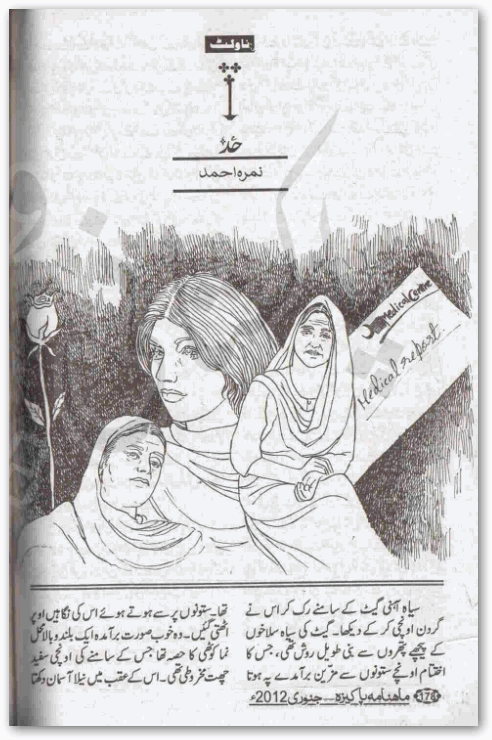 ناولٹ
حد
نمرہ احمد
Medical Centre
Medical report
سیاہ آہنی گیٹ کے سامنے رک کر اس نے
گردن اونچی کر کے دیکھا۔ گیٹ کی سیاہ سلاخوں
کے پیچھے پتھروں سے بنی طویل روش تھی، جس کا
اختتام اونچے ستونوں سے مزین برآمدے پہ ہوتا
تھا۔ ستونوں پر سے ہوتے ہوئے اس کی نگاہیں اوپر
اٹھتی گئیں۔ وہ خوب صورت برآمدہ ایک بلند و بالا محل
نما کوٹھی کا حصہ تھا جس کے سامنے کی اونچی سفید
چھت مخروطی تھی۔ اس کے عقب میں نیلا آسمان دکھتا
176 ماهنامه پاکیزہ۔ جنوری 2012ء